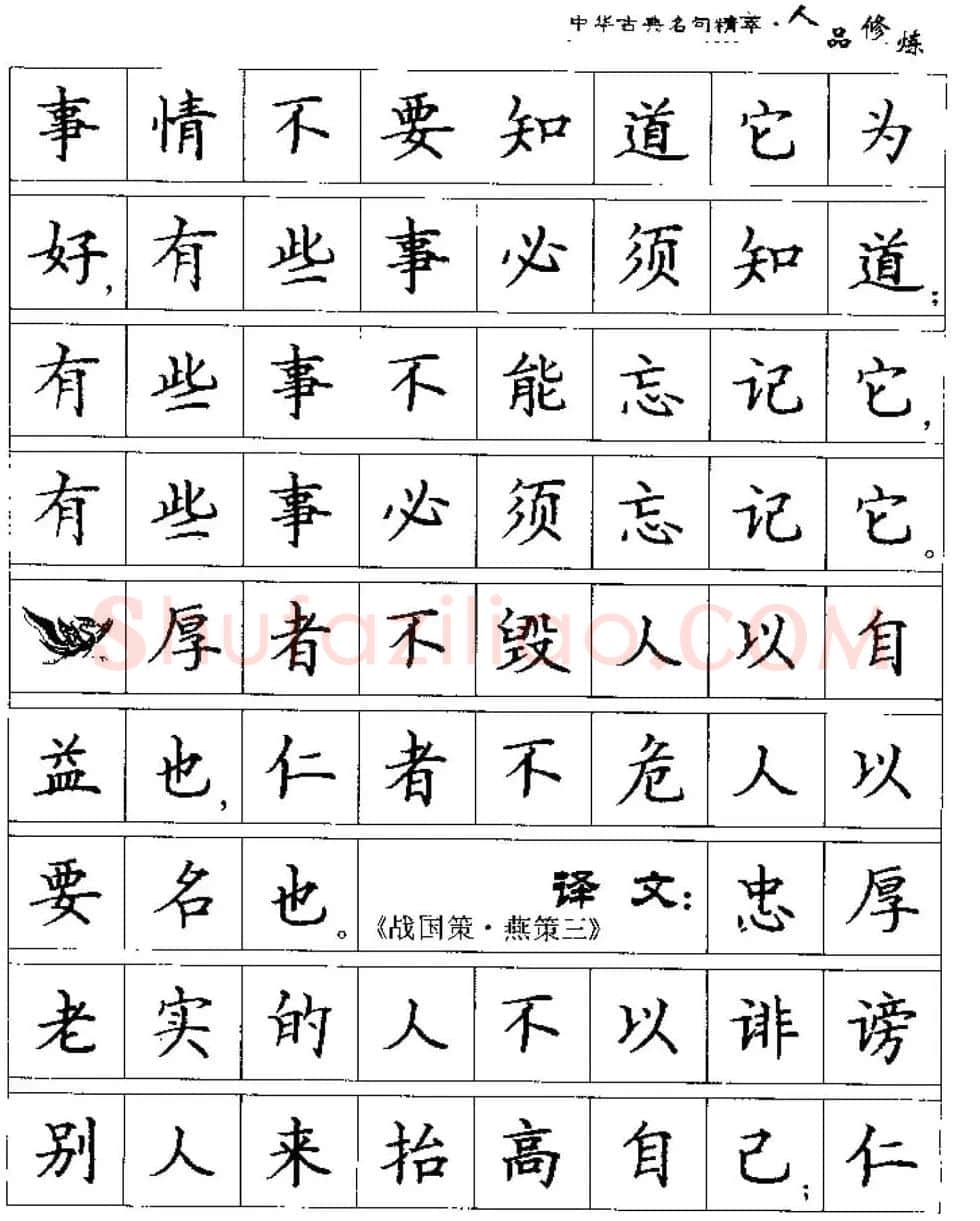 中华古典名句精萃·人品修炼
事情不要知道它为
好，有些事必须知道；
有些事不能忘记它，
有些事必须忘记它。
厚者不毁人以自
益也，仁者不危人以
要名也。《战国策·燕策三》译文：忠厚
老实的人不以诽谤
别人来抬高自己；仁
Shufaziliao.COM